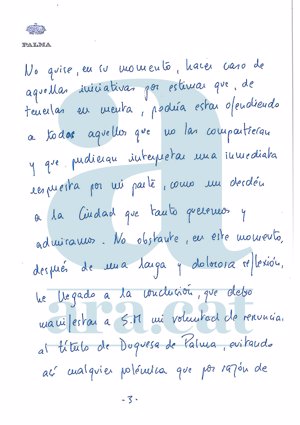 PALMA
No quise, en su momento, hacer caso de
aquellas iniciativas por estimar que, de
tenerlas en cuenta, podría estar ofendiendo
a todos aquellos que no las compartieran
y que pudieran interpretar una inmediata
respuesta por mi parte, como un desdén
a la Ciudad que tanto queremos y
admiramos. No obstante, en este momento,
después de una larga y dolorosa reflexión,
he llegado a la conclusión, que debo
manifestar a S.M mi voluntad de renuncia
al título de Duquesa de Palma, evitando
así cualquier polémica que por razón de
-3-
a
ara.cat